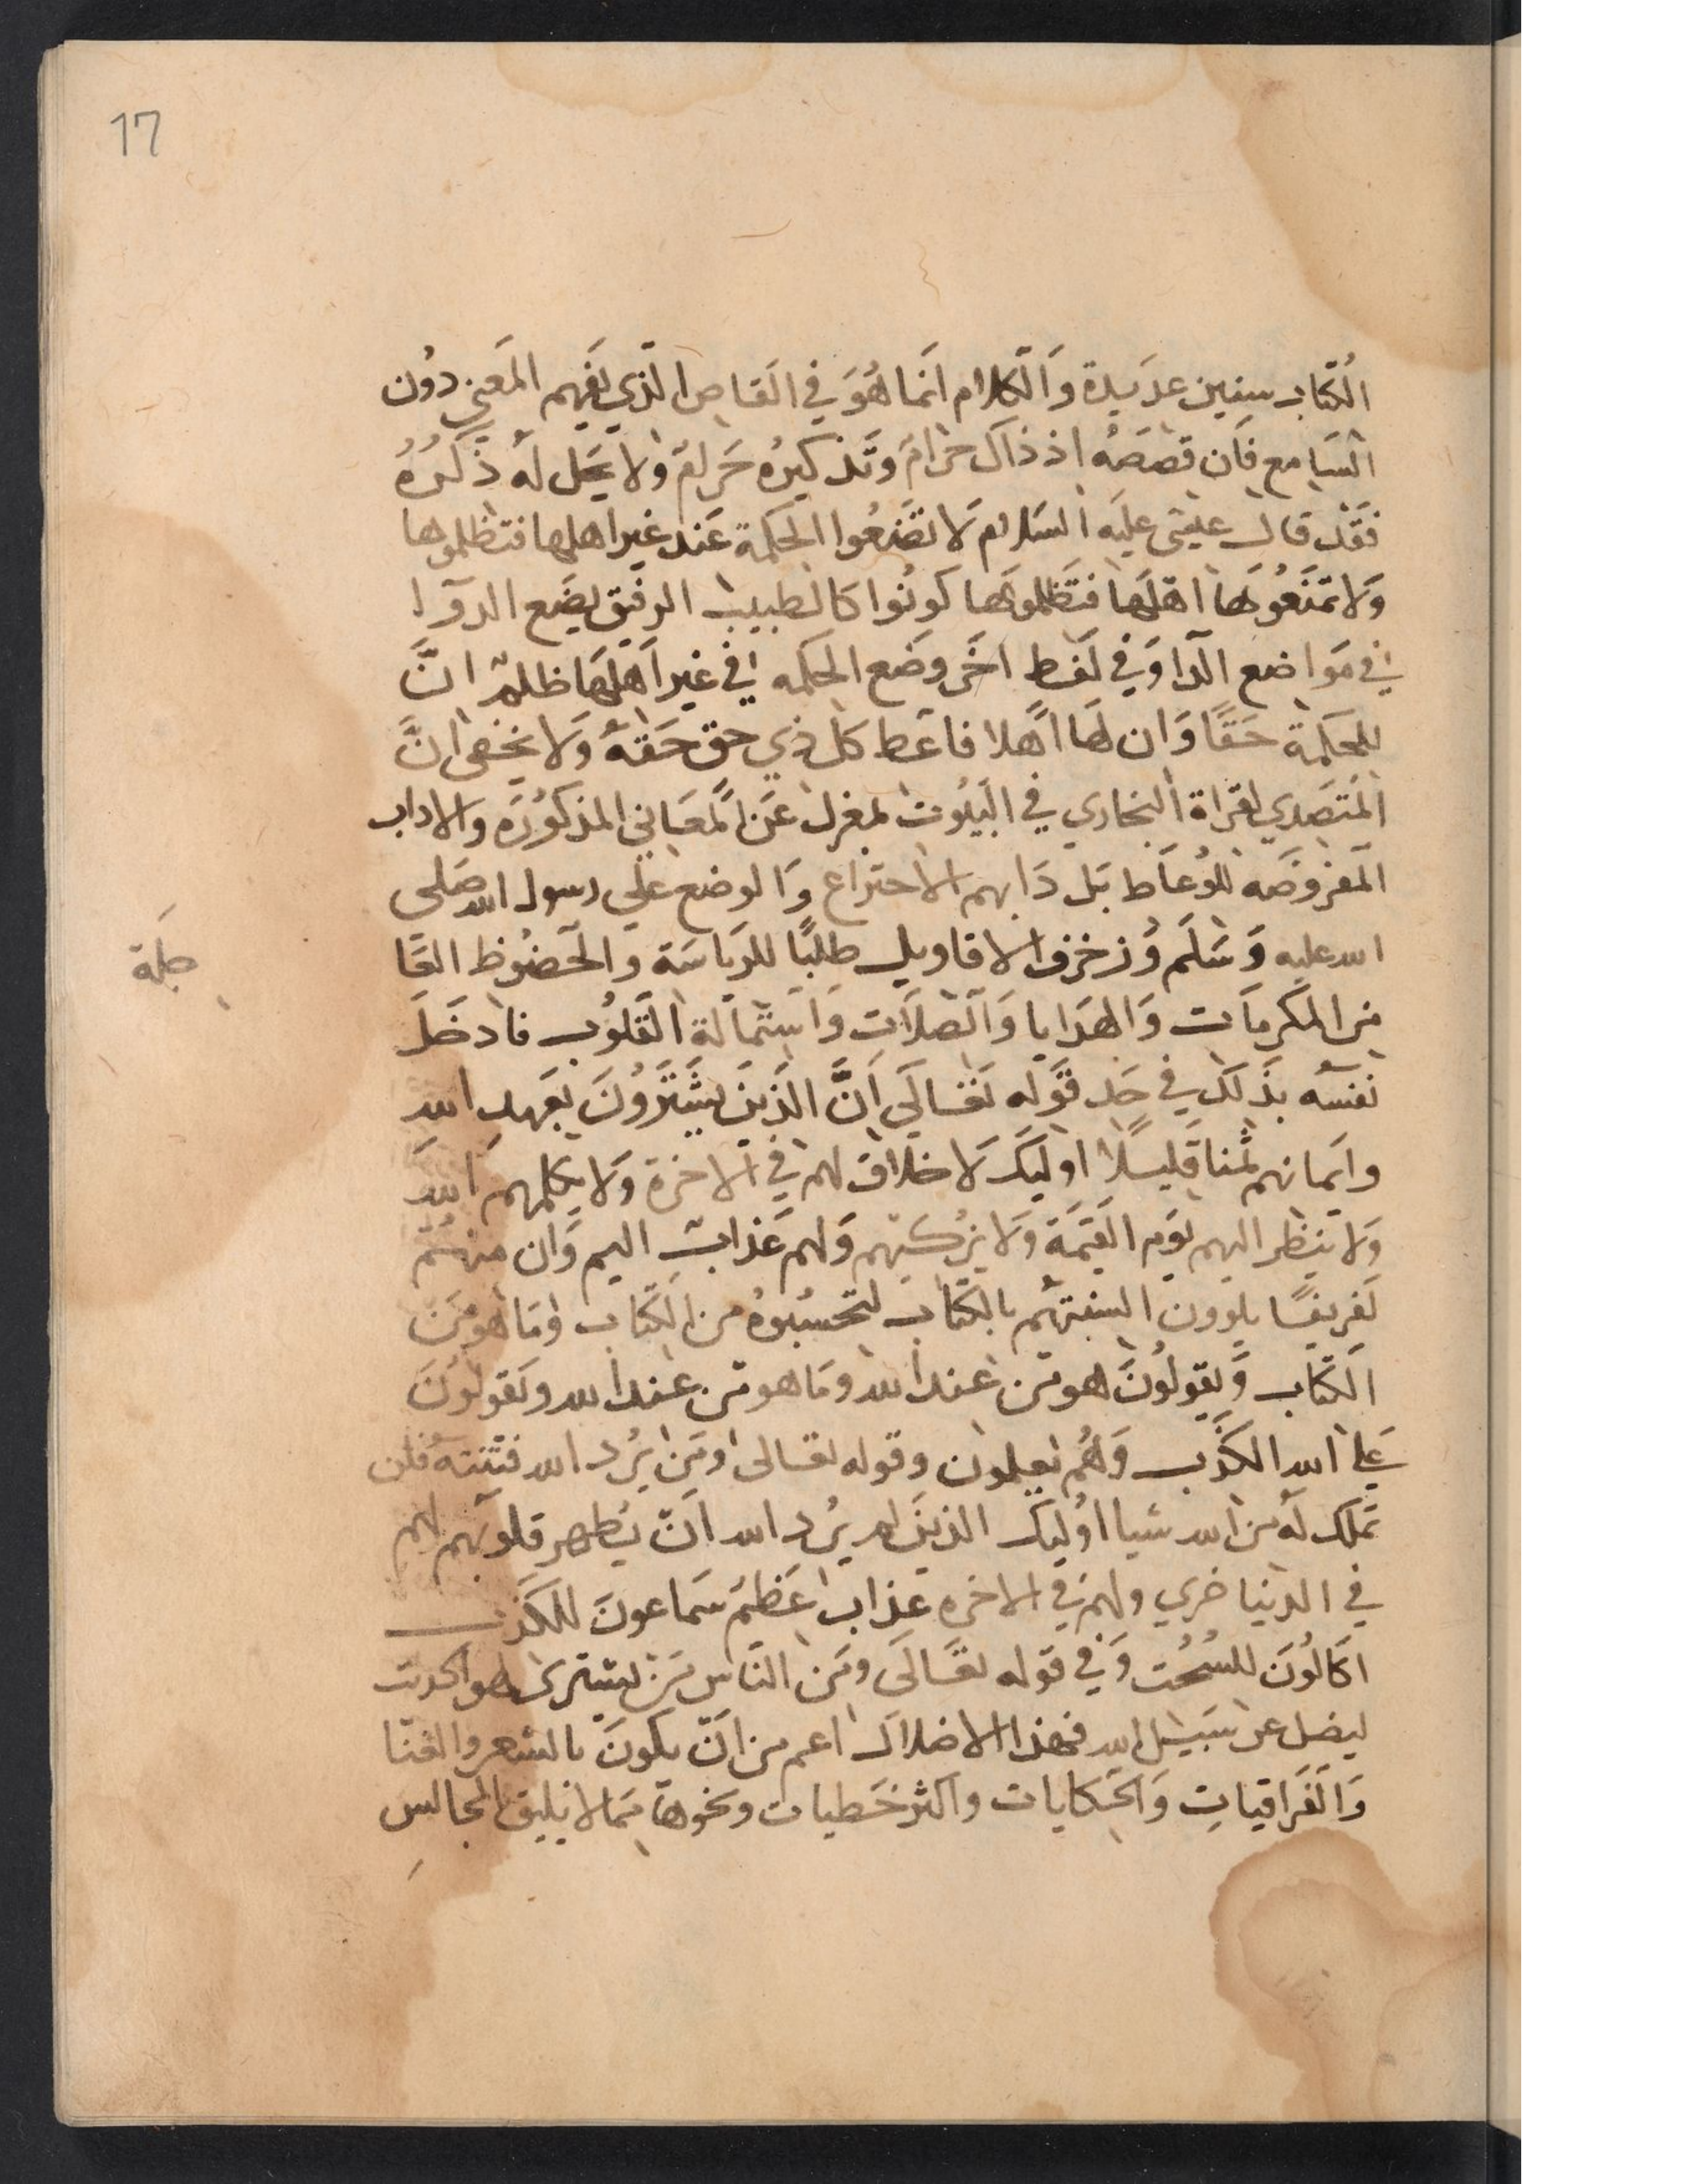 17
الكتاب سنين عديدة والكلام انما هو في القاص الذي يفهم المعنى دون
السامع فان قصصه اذ ذاك حرام وتذكيره حرام ولا يحل له ذكره
فقد قال عيسى عليه السلام لا تضعوا الحكمة عند غير اهلها فتظلموها
ولا تمنعوها اهلها فتظلموها كونوا كالطبيب الرفيق يضع الدوا
في مواضع الدا وفي لفظ اخر وضع الحكمه في غير اهلها ظلم ان
للحكمة حقا وان لها اهلا فاعط كل ذي حق حقه ولا يخفى ان
المتصدي لقراة البخاري في البيوت بمعزل عن المعاني المذكوره والاداب
المفروضه للوعاط بل دابهم الاختراع والوضع علي رسول الله صلي
الله عليه وسلم وزخرف الاقاويل طلبا للرياسة والحضوظ
من المكرمات والهدايا والصلات واستمالة القلوب فادخل
نفسه بذلك في حد قوله تعالى ان الذين يشترون بعهد الله
وايمانهم ثمنا قليلا اوليك لا خلاق لهم في الاخرة ولا يكلمهم الله
ولا ينظر اليهم يوم القيمة ولا يزكيهم ولهم عذاب اليم وان منهم
لفريقا يلوون السنتهم بالكتاب لتحسبوه من الكتاب وما هو من
الكتاب ويقولون هو من عند الله وما هو من عند الله ويقولون
على الله الكذب وهم يعلمون وقوله تعالى ومن يرد الله فتنته فلن
تملك له من الله شيا اوليك الذين لم يرد الله ان يطهر قلوبهم لهم
في الدنيا خزي ولهم في الاخره عذاب عظيم سماعون للكذب
اكالون للسحت وفي قوله تعالى ومن الناس من يشترى لهو الحديث
ليضل عن سبيل الله فهذا الاضلال اعم من ان يكون بالشعر والغنا
والفراقيات والحكايات واكثر خطيات ونحوها مما لا يليق المجالس